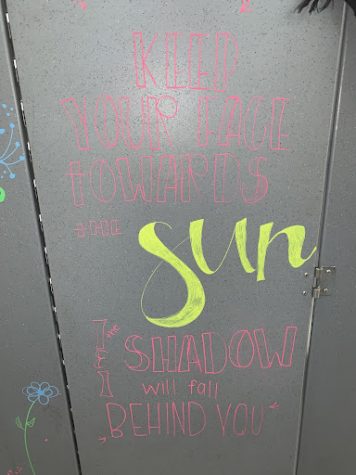 KEEP
YOUR FACE
tOWARDS
tHE
sun
the
SHADOW
will fall
BEHIND YOU